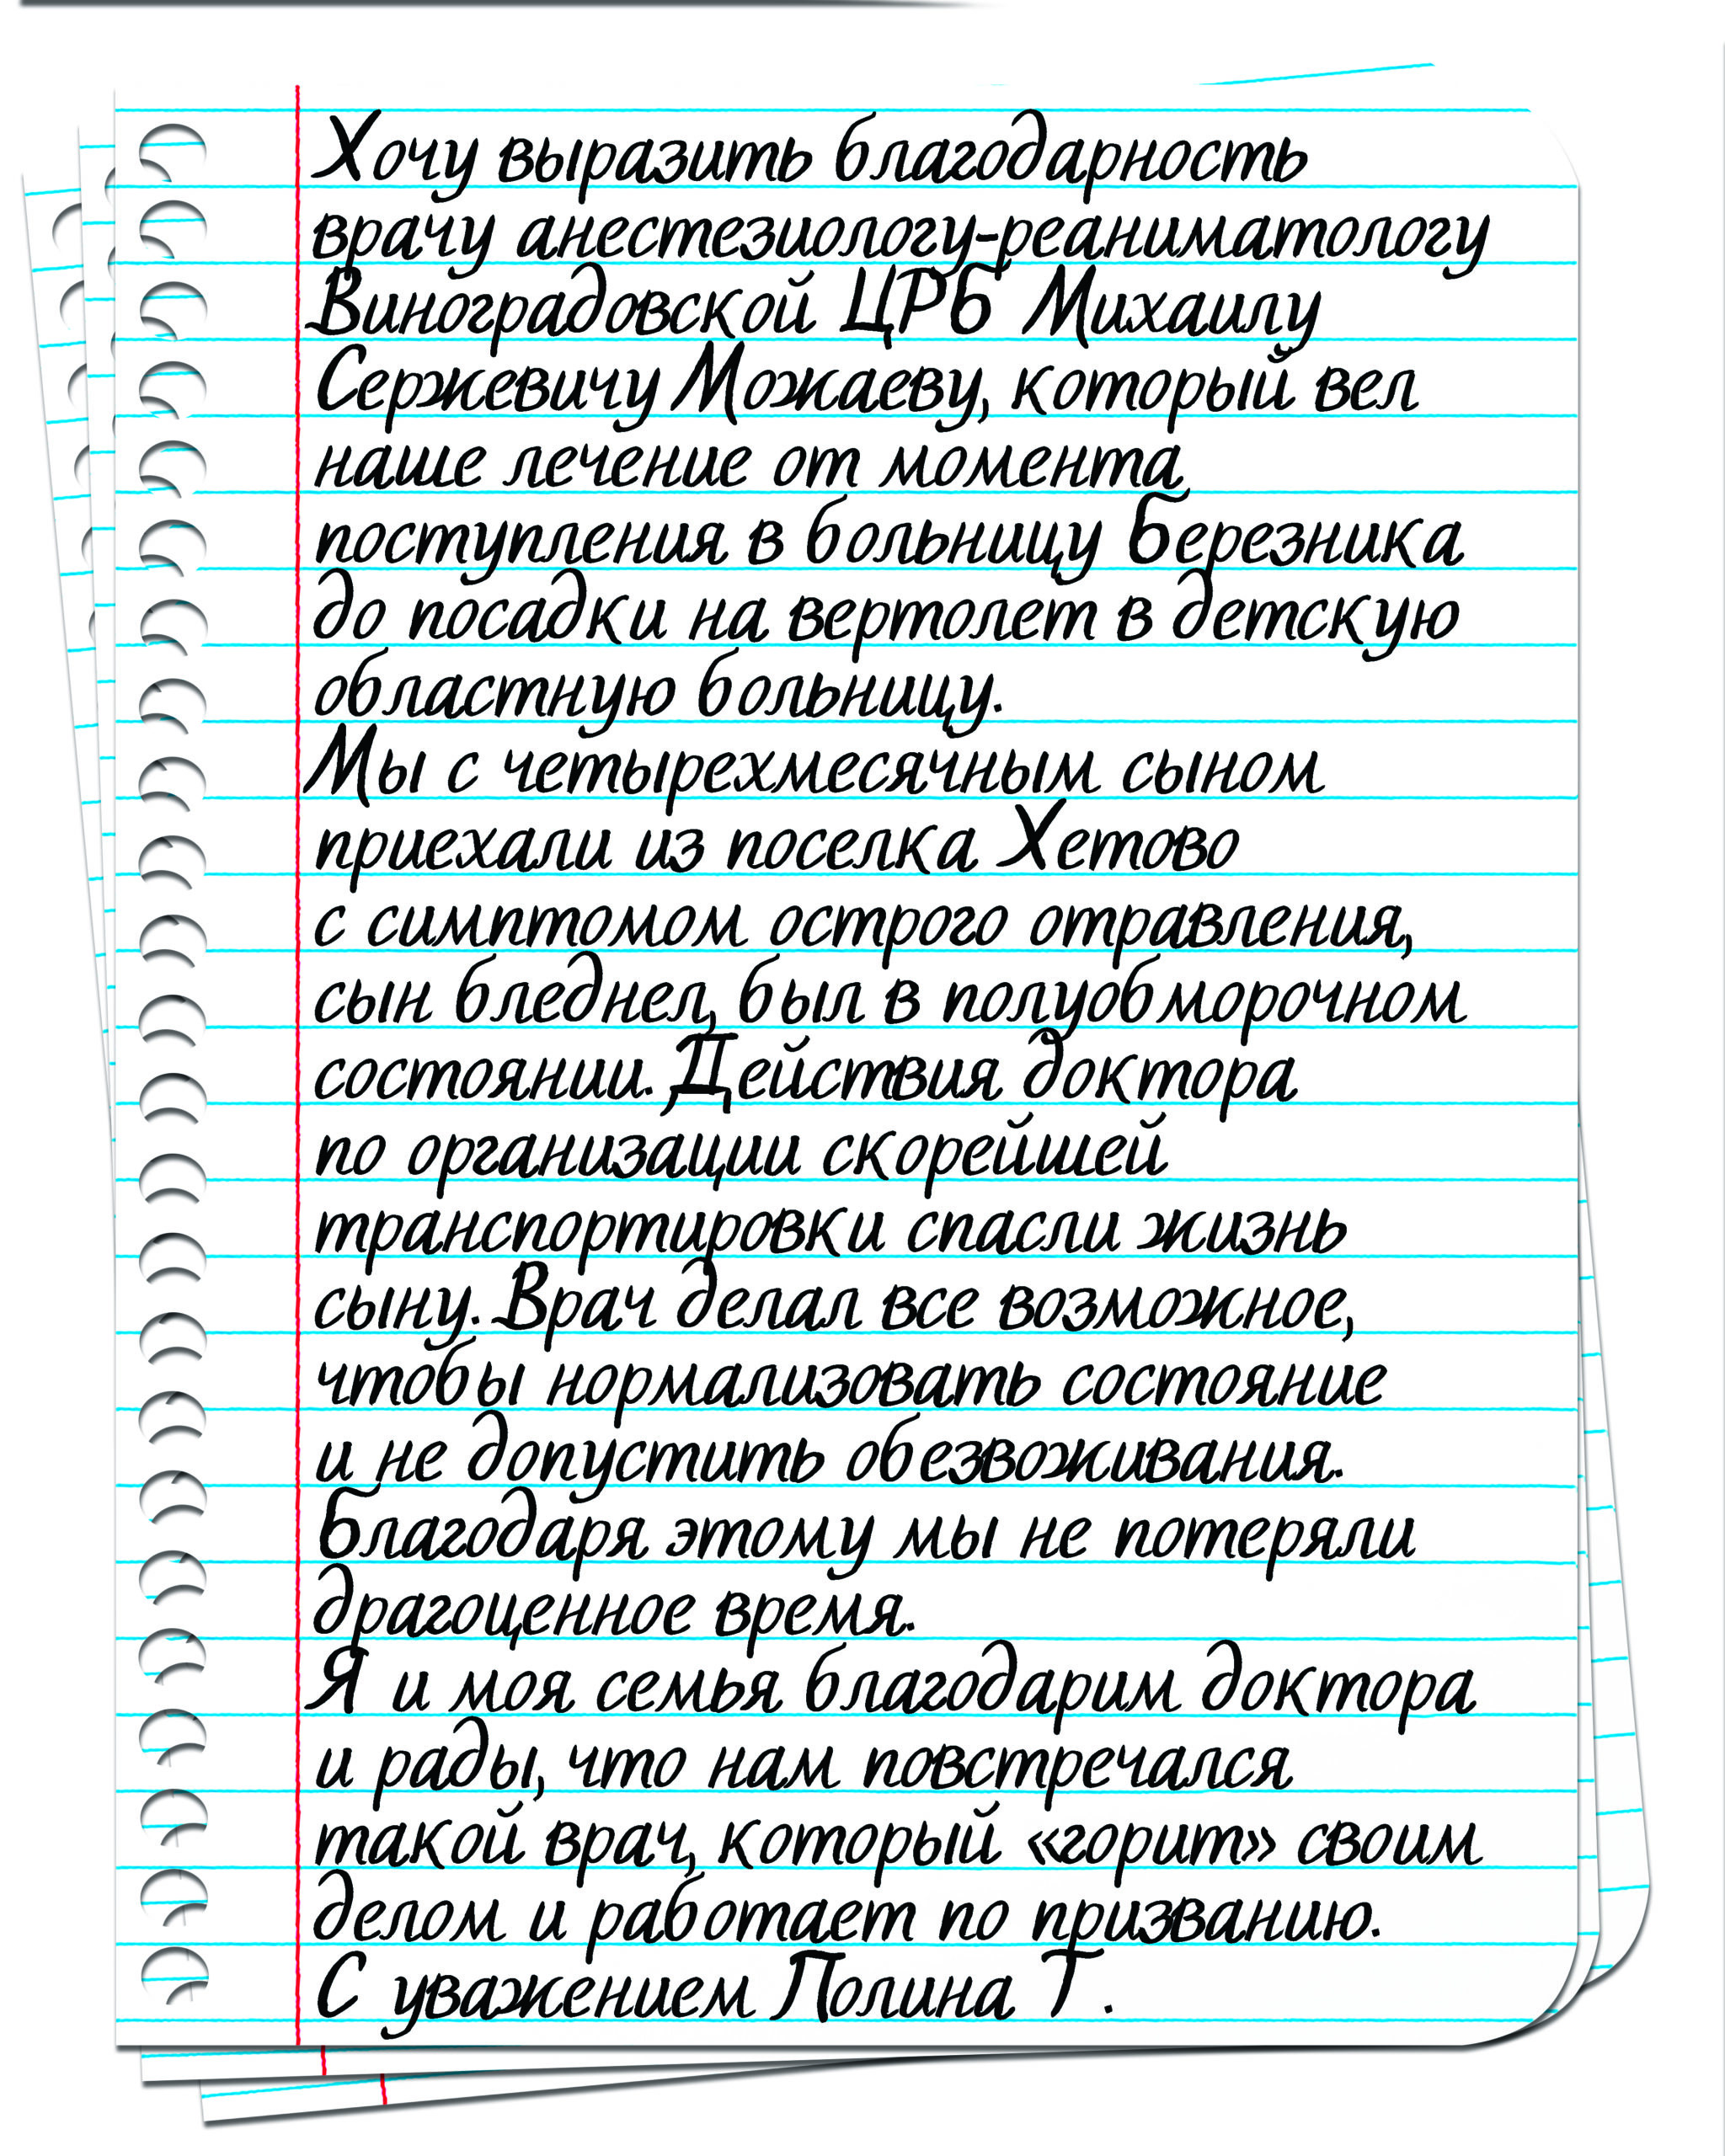 Хочу выразить благодарность
врачу анестезиологу-реаниматологу
Виноградовской ЦРБ Михаилу
Сержевичу Можаеву, который вел
наше лечение от момента
поступления в больницу Березника
до посадки на вертолет в детскую
областную больницу.
Мы с четырехмесячным сыном
приехали из поселка Хетово
с симптомом острого отравления,
сын бледнел, был в полуобморочном
состоянии. Действия доктора
по организации скорейшей
транспортировки спасли жизнь
сыну. Врач делал все возможное,
чтобы нормализовать состояние
и не допустить обезвоживания.
Благодаря этому мы не потеряли
драгоценное время.
Я и моя семья благодарим доктора
и рады, что нам повстречался
такой врач, который «горит» своим
делом и работает по призванию.
С уважением Полина Т.